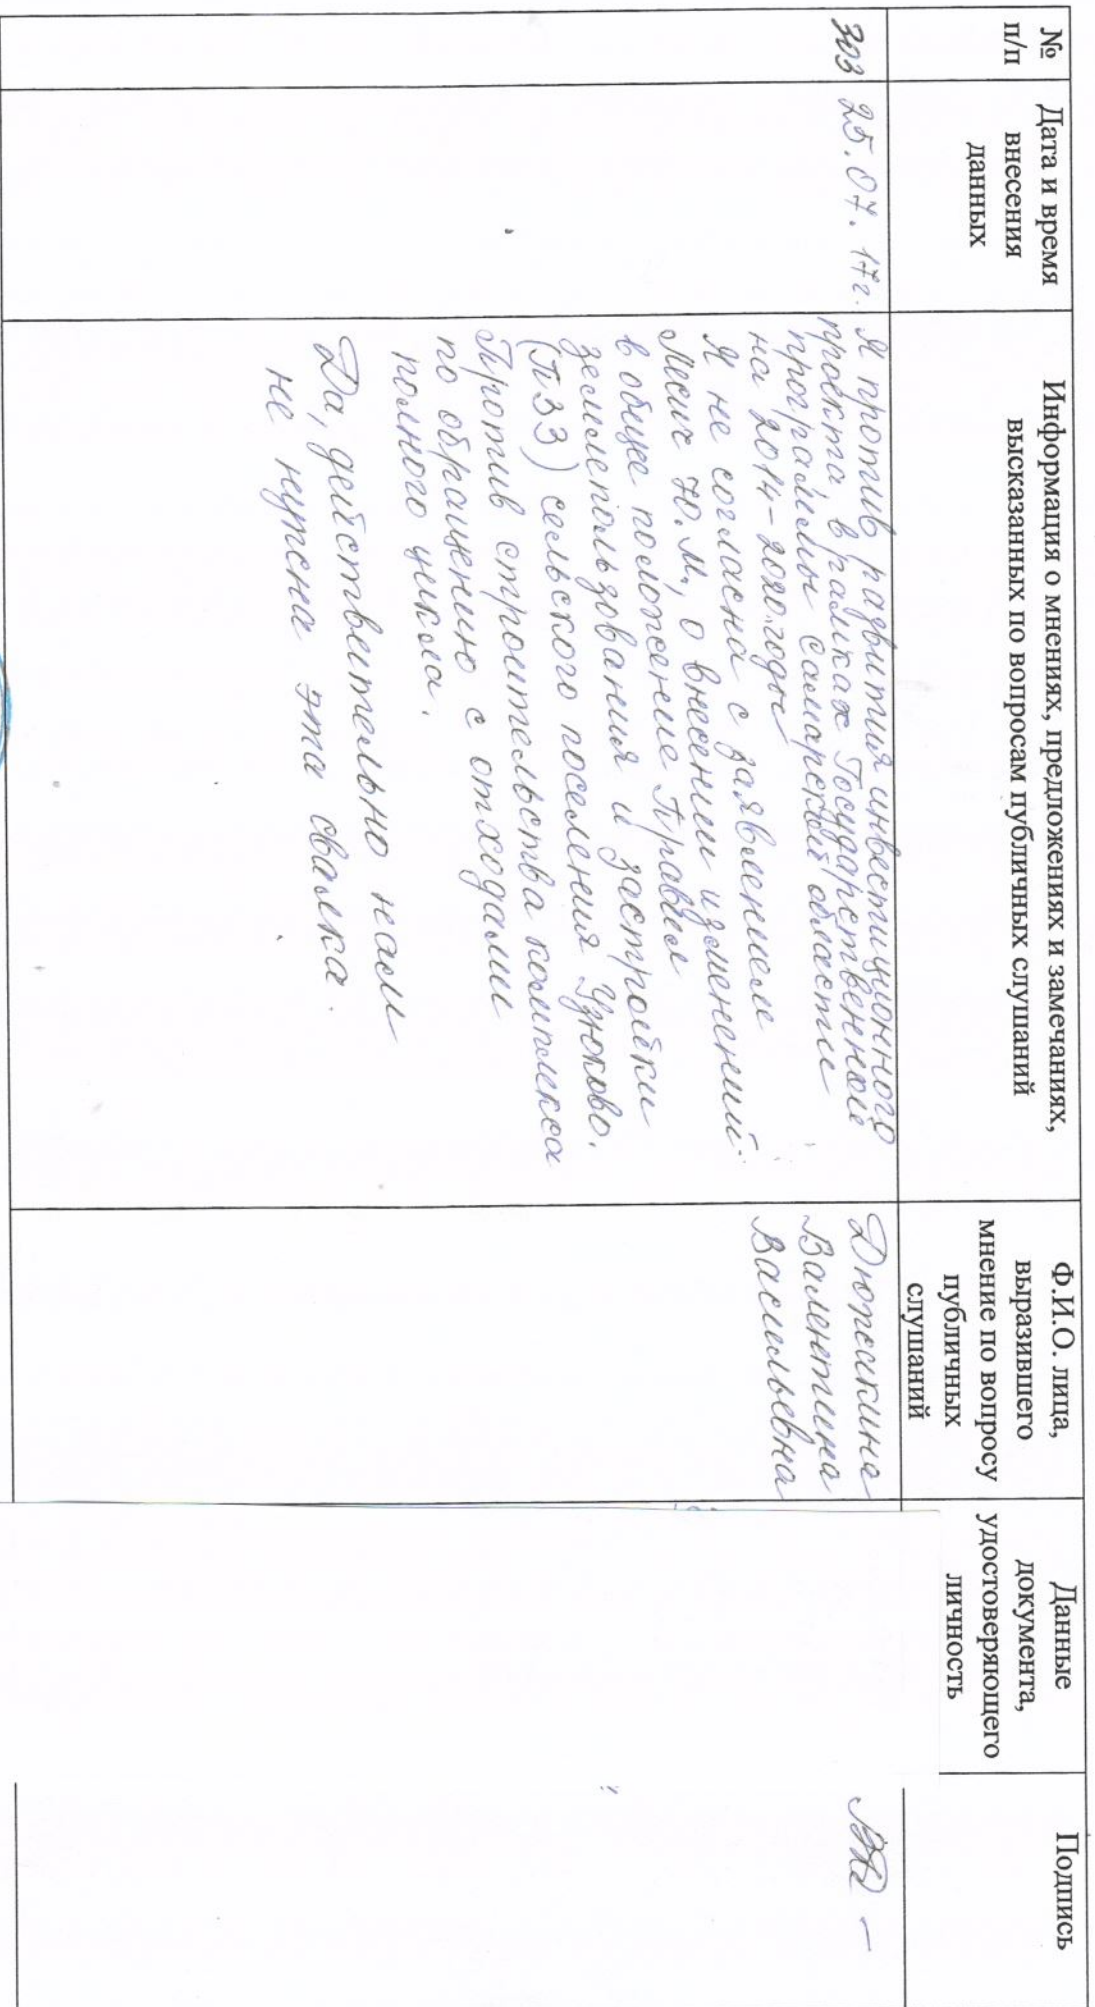 №
п/п
Дата и время
внесения
данных
Информация о мнениях, предложениях и замечаниях,
высказанных по вопросам публичных слушаний
Ф.И.О. лица,
выразившего
мнение по вопросу
публичных
слушаний
Данные
документа,
удостоверяющего
личность
Подпись
303
25.07.17г.
Я против развития инвестиционного
проекта, в рамках Государственной
программы самарской области
на 2014-2020 годы
Я не согласна с заявлением
Ю.М, о внесении изменений
в общее положение Правил
землепользования и застройки
(ПЗЗ) сельского поселения Узюково.
Против строительства комплекса
по обращению с отходами
полного цикла.
Да, действительно нам
не нужна эта свалка.
Валентина
Васильевна